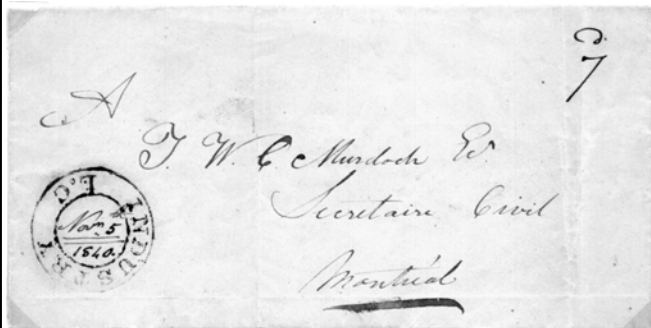 d.
7
A
T. W. C. Murdoch Er.
Secretaire Civil
Montréal
INDUSTRY L.C
Novr. 5
1840.